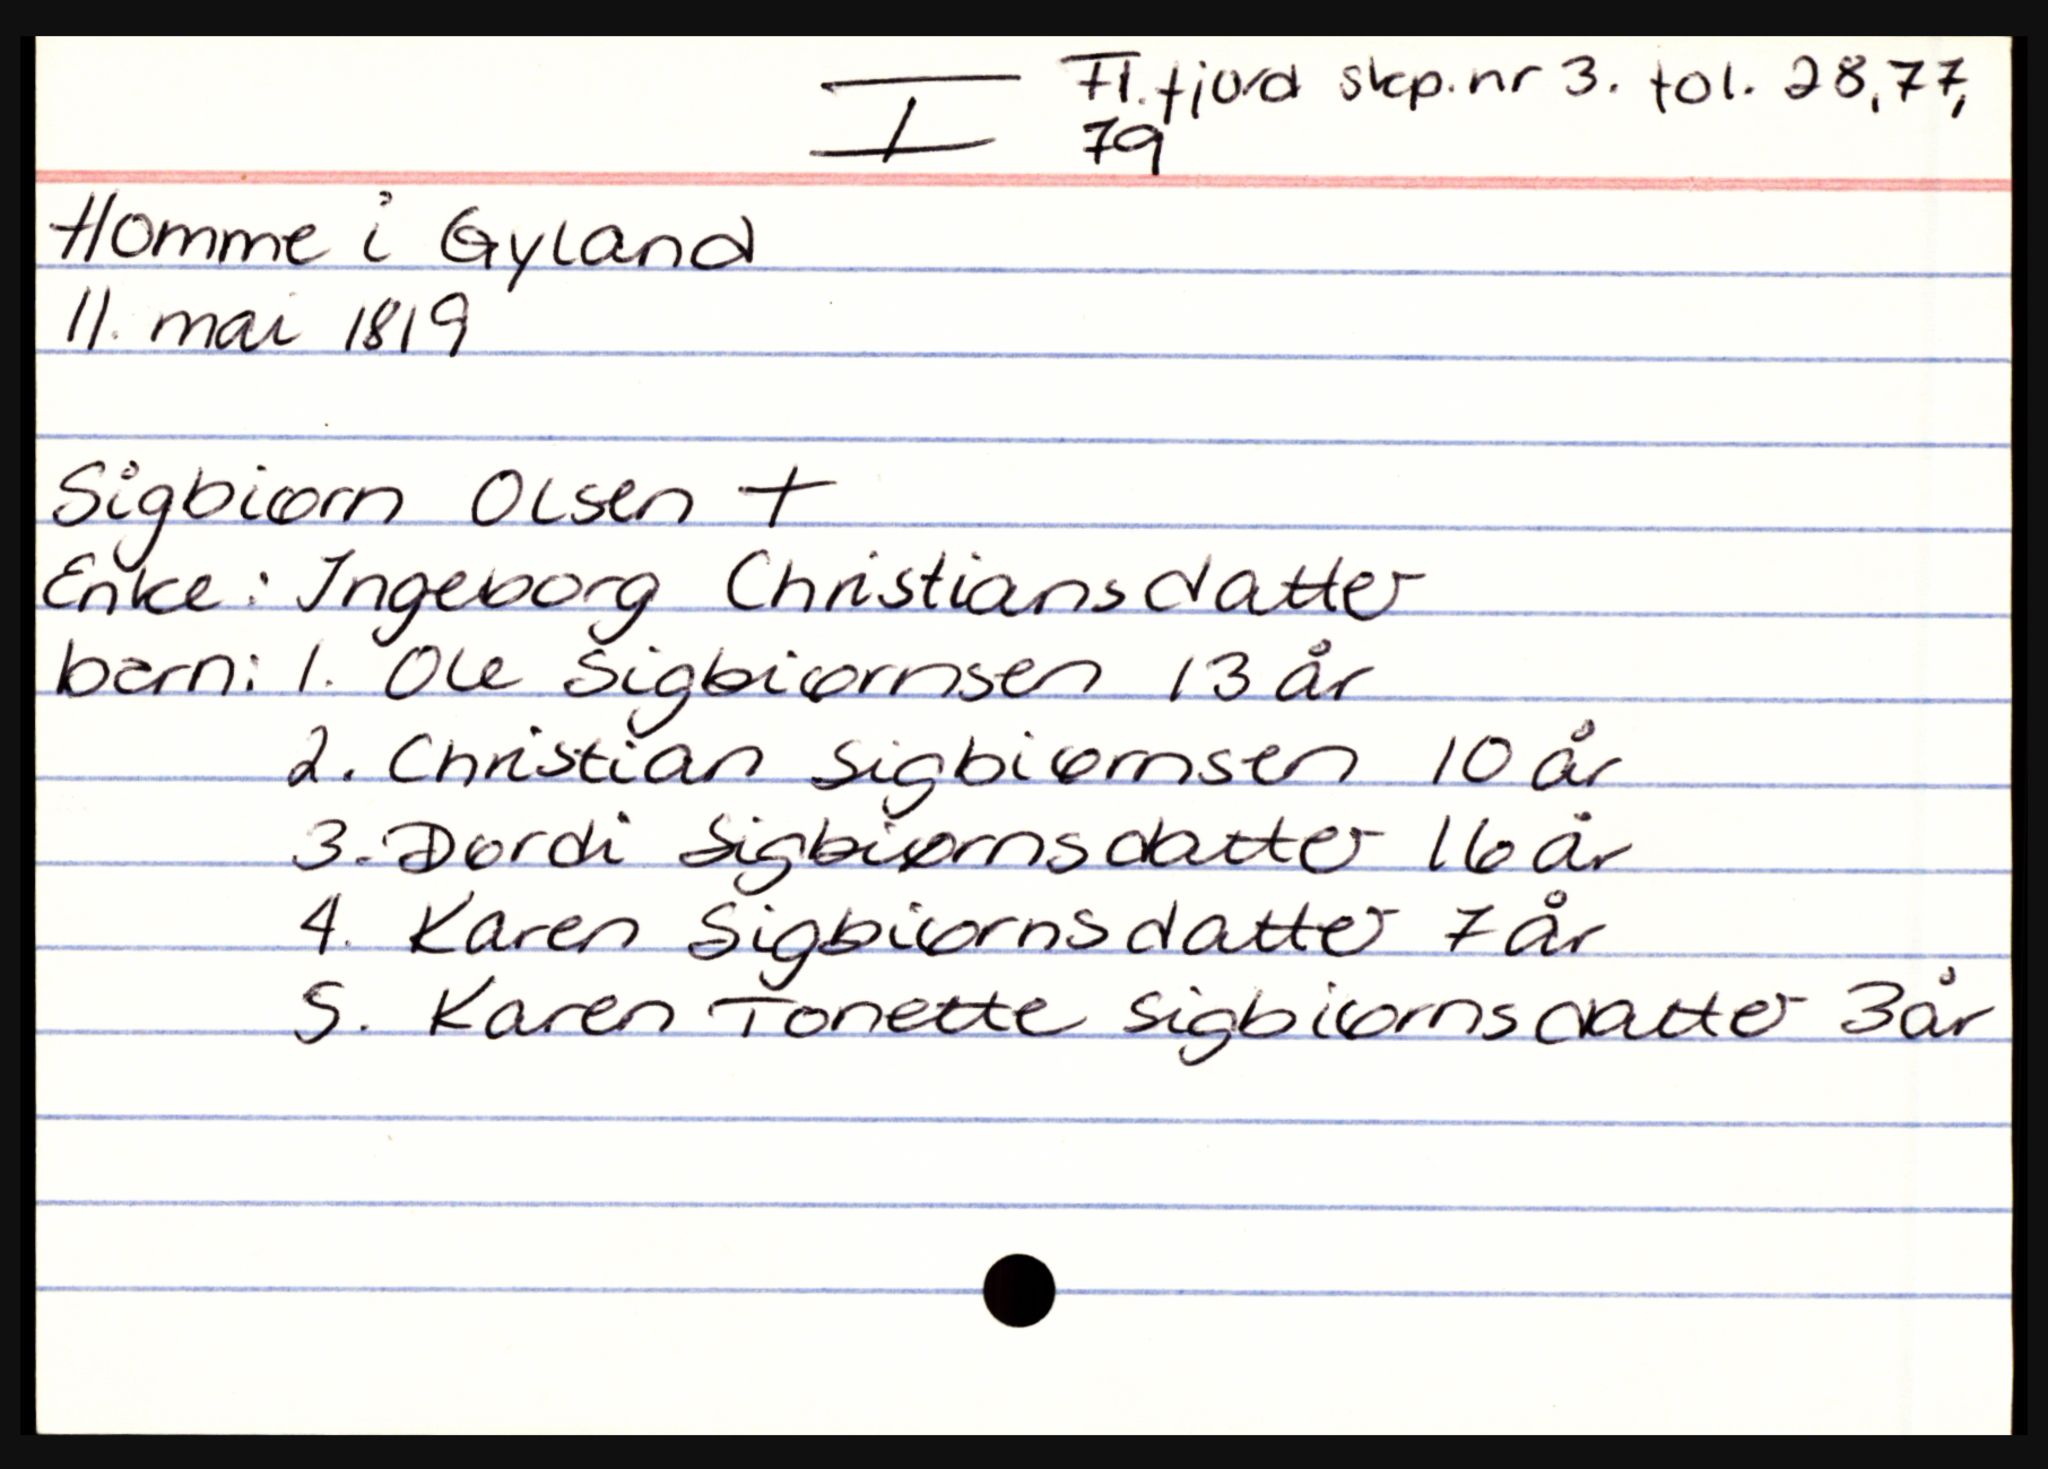 I Fl.fjord skp.nr 3. fol. 28, 77,
79
Homme i Gyland
11. mai 1819
Sigbiørn Olsen +
Enke: Ingeborg Christiansdatter
barn: 1. Ole Sigbiørnsen 13 år
2. Christian Sigbiørnsen 10 år
3. Dordi Sigbiørnsdatter 16 år
4. Karen Sigbiørnsdatter 7 år
5. Karen Tonette Sigbiørnsdatter 3 år